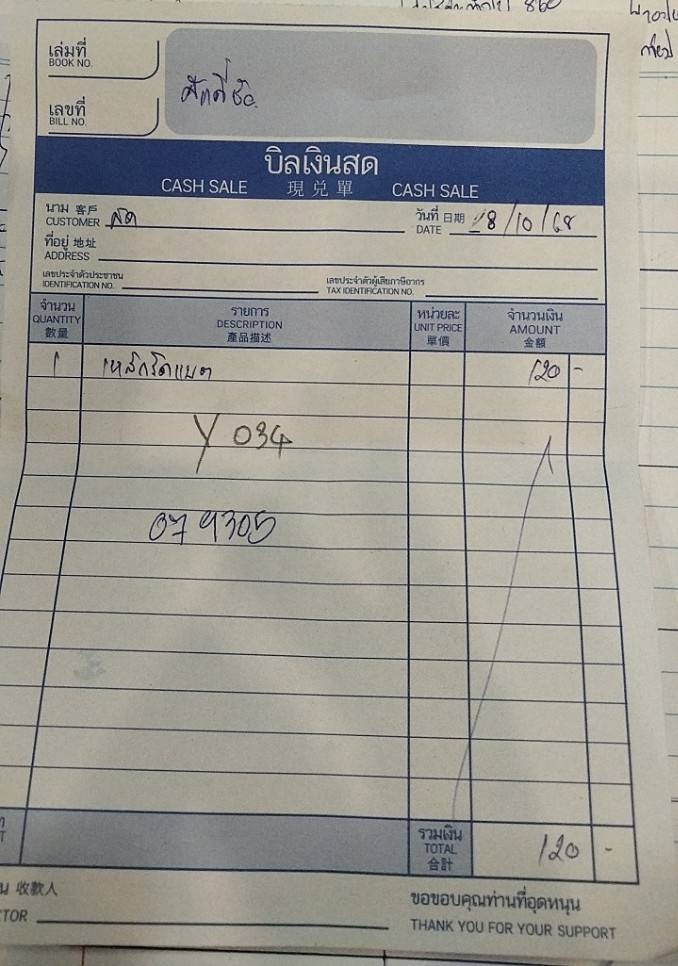 860
เล่มที่
BOOK NO.
ศักดิ์ชัย
เลขที่
BILL NO.
บิลเงินสด
CASH SALE 現兌單 CASH SALE
นาม 客戶
CUSTOMER สด
วันที่ 日期
DATE 18/10/68
ที่อยู่ 地址
ADDRESS
เลขประจำตัวประชาชน
IDENTIFICATION NO.
เลขประจำตัวผู้เสียภาษีอากร
TAX IDENTIFICATION NO.
จำนวน รายการ หน่วยละ จำนวนเงิน
QUANTITY DESCRIPTION UNIT PRICE AMOUNT
數量 產品描述 單價 金額
1 เหล็กรัดแบต 120 -
Y 034
079305
รวมเงิน
TOTAL 120 -
合計
收款人
TOR
ขอขอบคุณท่านที่อุดหนุน
THANK YOU FOR YOUR SUPPORT